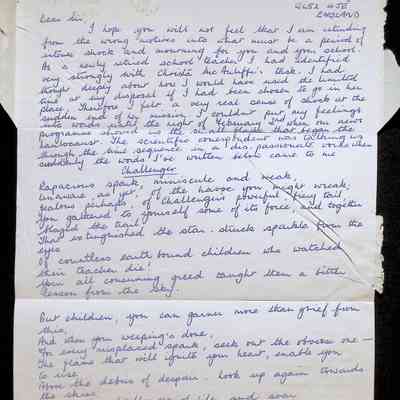 ENGLAND
Dear Sir,
I hope you will not feel that I am intruding
from the wrong motives into what must be a period of
intense shock and mourning for you and your school.
As a newly retired school teacher I had identified
very strongly with Christa McAuliffe's task. I had
thought deeply about how I would have used the limited
time at my disposal if I had been chosen to go in her
place. Therefore I felt a very real sense of shock at the
sudden end of her mission. I couldn't put my feelings
into words until the night of February 3rd when our news
programme showed us the small flash that began the
holocaust. The scientific correspondent was talking us
through the time sequence in a dispassionate voice when
suddenly the words I've written below came to me
Challenger
Rapacious spark, miniscule and meek,
Unaware as yet, of the havoc you might wreak,
Jealous perhaps, of Challenger's powerful fiery tail
You gathered to yourself some of its force, and together
blazed the trail
That extinguished the star: struck sparkle from the
eyes
Of countless earth bound children who watched
their teacher die!
Your all consuming greed taught them a bitter
lesson from the sky.
But children, you can garner more than grief from
this,
And when your weeping's done,
For every misplaced spark, seek out the obverse one —
The flame that will ignite your heart, enable you
to rise
Above the debris of despair. Look up again towards
the skies
of life and soar